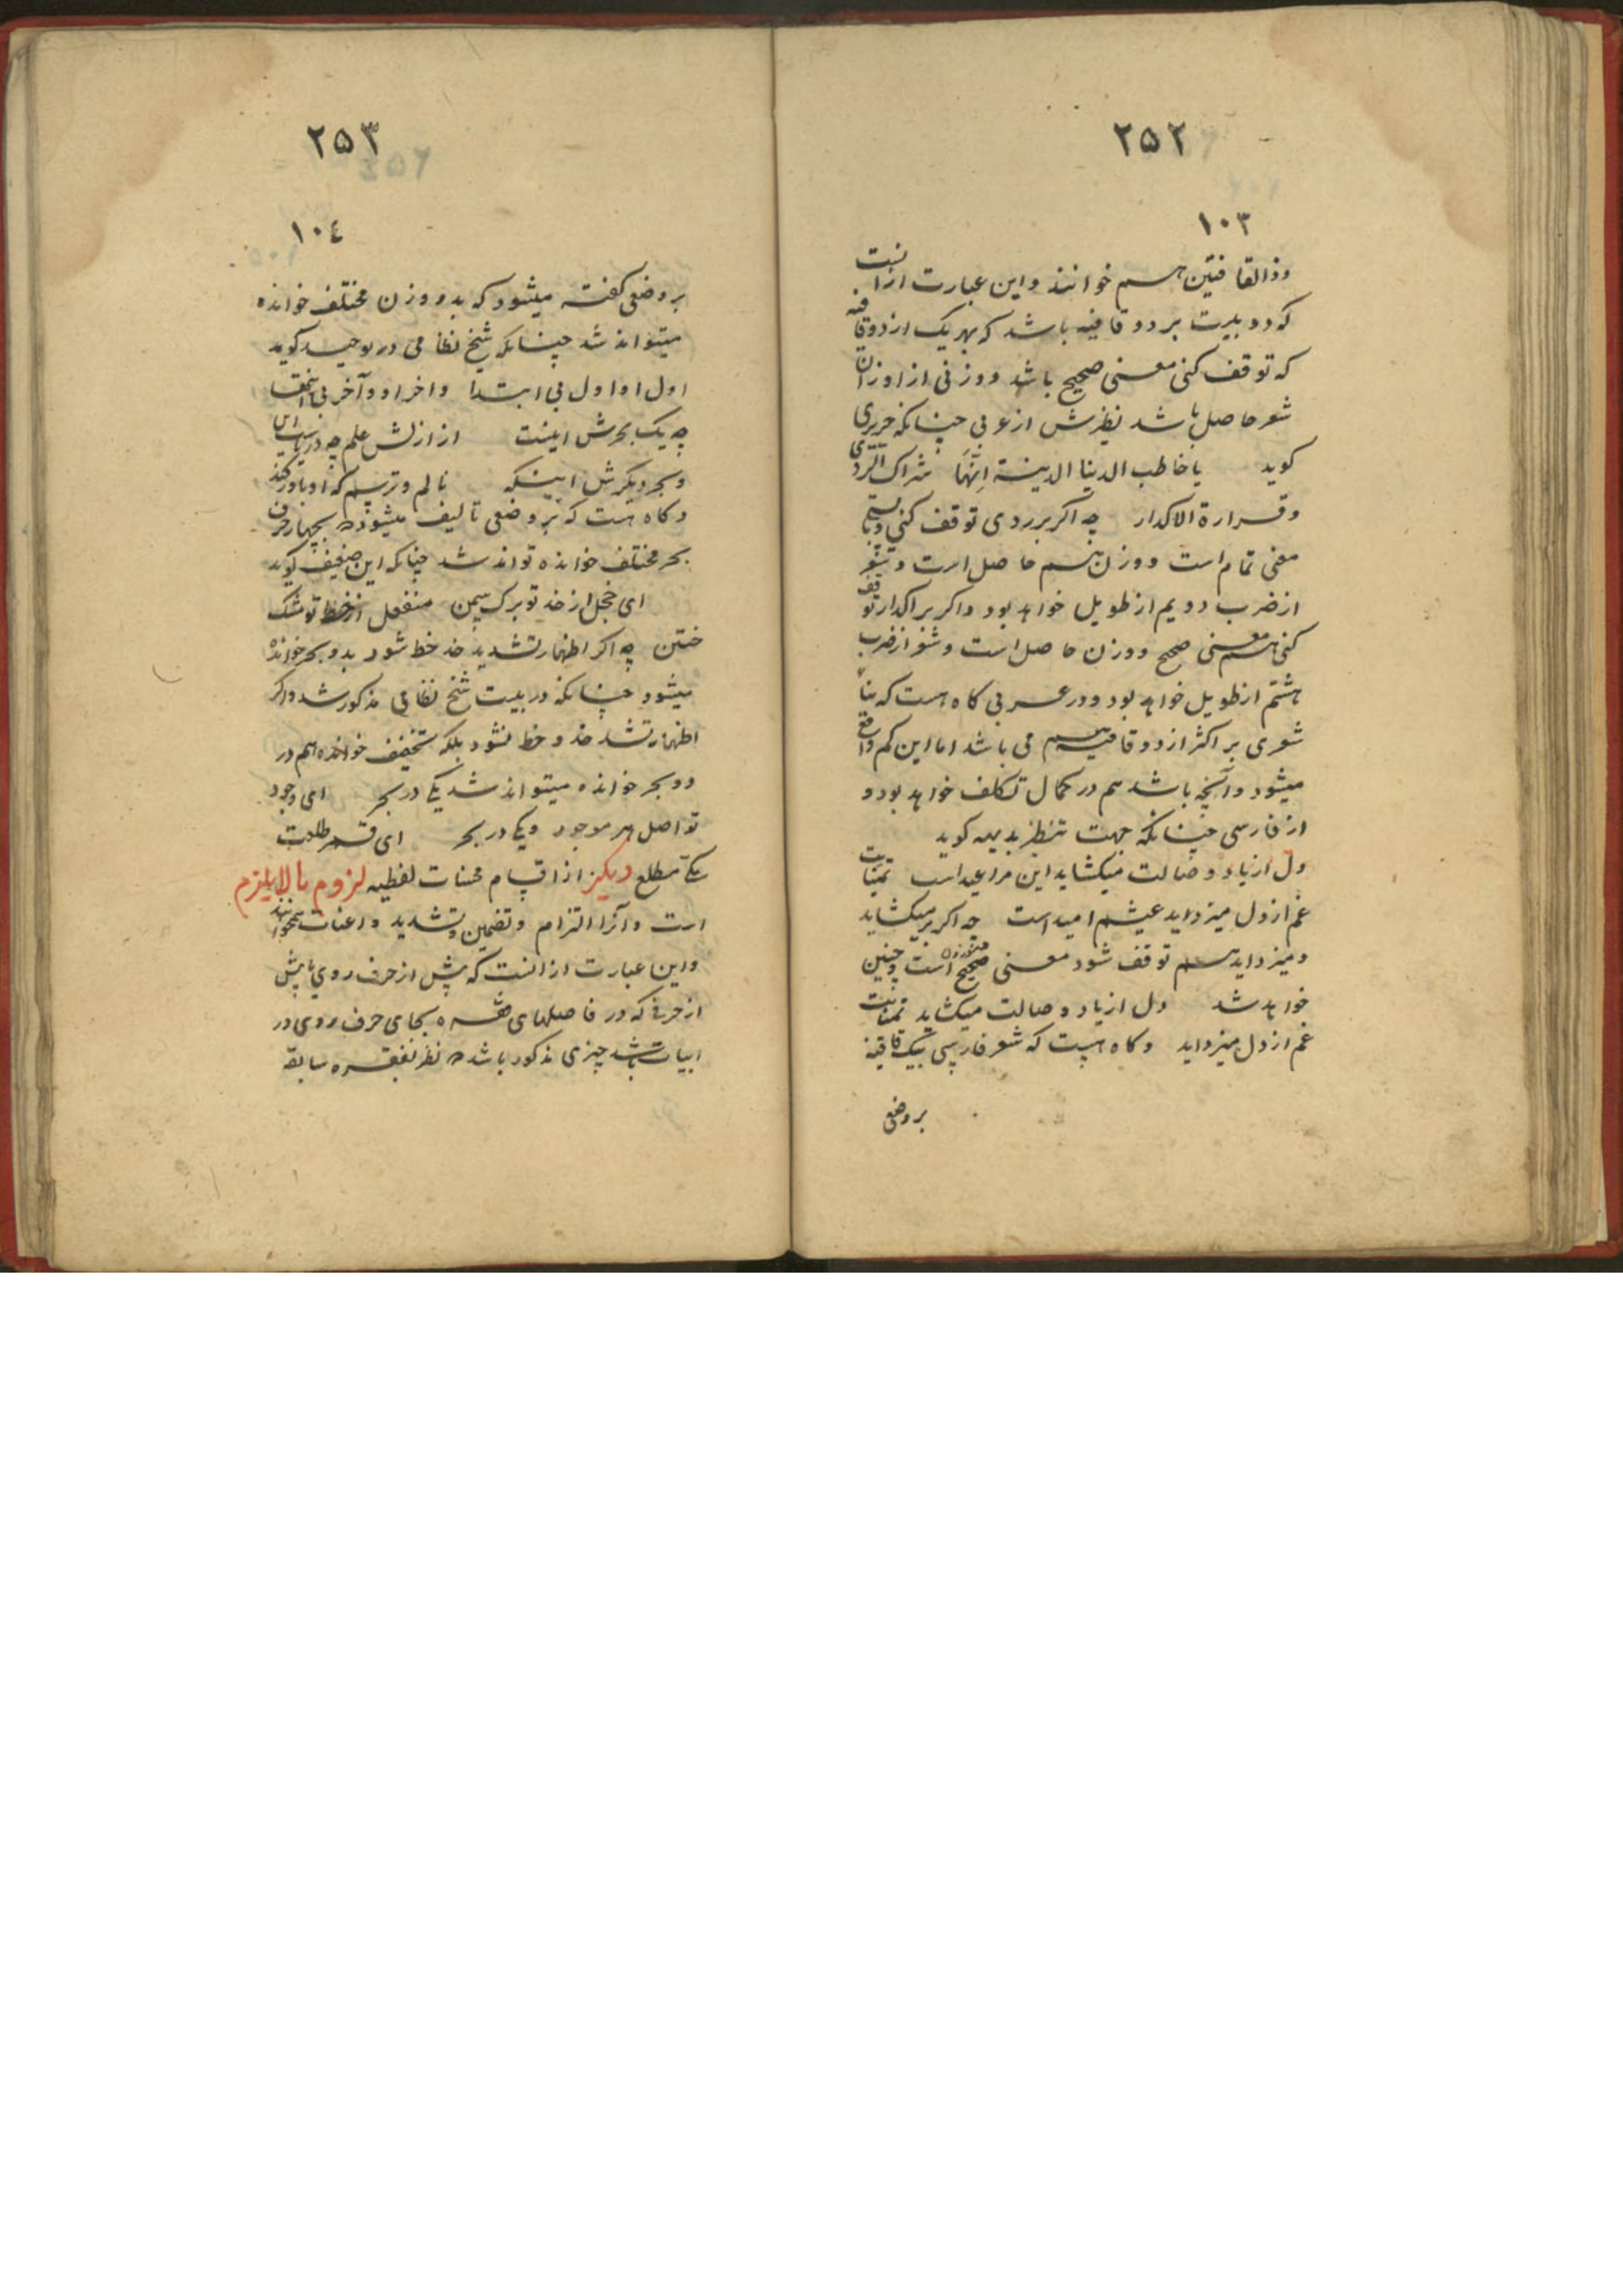 ۲۵۲
۱۰۳
وذالقافتین هم خوانند واین عبارت ازانست
که دو بیت بر دو قافیه باشد که بهریک از دو قافیه
که توقف کنی معنی صحیح باشد ووزنی از اوزان
شعر حاصل باشد نظیرش از عربی چنانکه حریری
کوید یا خاطب الدنیا الدنیة انها شراک الردی
وقرارة الاکدار چه اکر بر ردی توقف کنی
معنی تمام است ووزن هم حاصل است وشعر
از ضرب دویم از طویل خواهد بود واکر بر اکدار توقف
کنی هم معنی صحیح ووزن حاصل است وشعر از ضرب
هشتم از طویل خواهد بود ودر عربی کاه هست که بناء
شعری بر اکثر از دو قافیه هم می باشد اما این کم واقع
میشود وآنچه باشد هم در کمال تکلف خواهد بود و
از فارسی چنانکه جهت تنظیر بدیهه کوید
دل از یاد وصالت میکشاید این مرا عید است تمنایت
غم از دل میزداید عیشم امید است چه اکر بر میکشاید
ومیزداید هم توقف شود معنی صحیح است وچنین
خواهد شد دل از یاد وصالت میکشاید تمنایت
غم از دل میزداید وکاه هست که شعر فارسی بیک قافیه
بر وضعی
۲۵۳
۱۰٤
بر وضعی کفته میشود که بدو وزن مختلف خوانده
میتواند شد چنانکه شیخ نظامی در توحید کوید
اول او اول بی ابتدا واخر او وآخر بی انتها
چه یک بحرش اینست از ازلش علم چه دریاست این
وبحر دیکرش اینکه
وکاه هست که بر وضعی تالیف میشود که بچهار
بحر مختلف خوانده تواند شد چنانکه این ضعیف کوید
ای خجل از خد تو برک سمن منفعل از خط تو مشک
ختن چه اکر اظهار تشدید خد خط شود بدو بحر خوانده
میشود چنانکه در بیت شیخ نظامی مذکور شد واکر
اظهار تشد خد و خط نشود بلکه بتخفیف خوانده هم در
دو بحر خوانده میتواند شد یکی در بحر ای وجود
تو اصل هر موجود ویکی در بحر ای قمر طلعت
یکی مطلع دیکر از اقسام محسنات لفظیه لزوم مالایلزم
است وآنرا التزام وتضمین وتشدید واعنات میخوانند
واین عبارت از انست که پیش از حرف روی یا پیش
از حرفی که در فاصلهای فقره بجای حرف روی در
ابیات باشد چیزی مذکور باشد که نظر بفقره سابقه